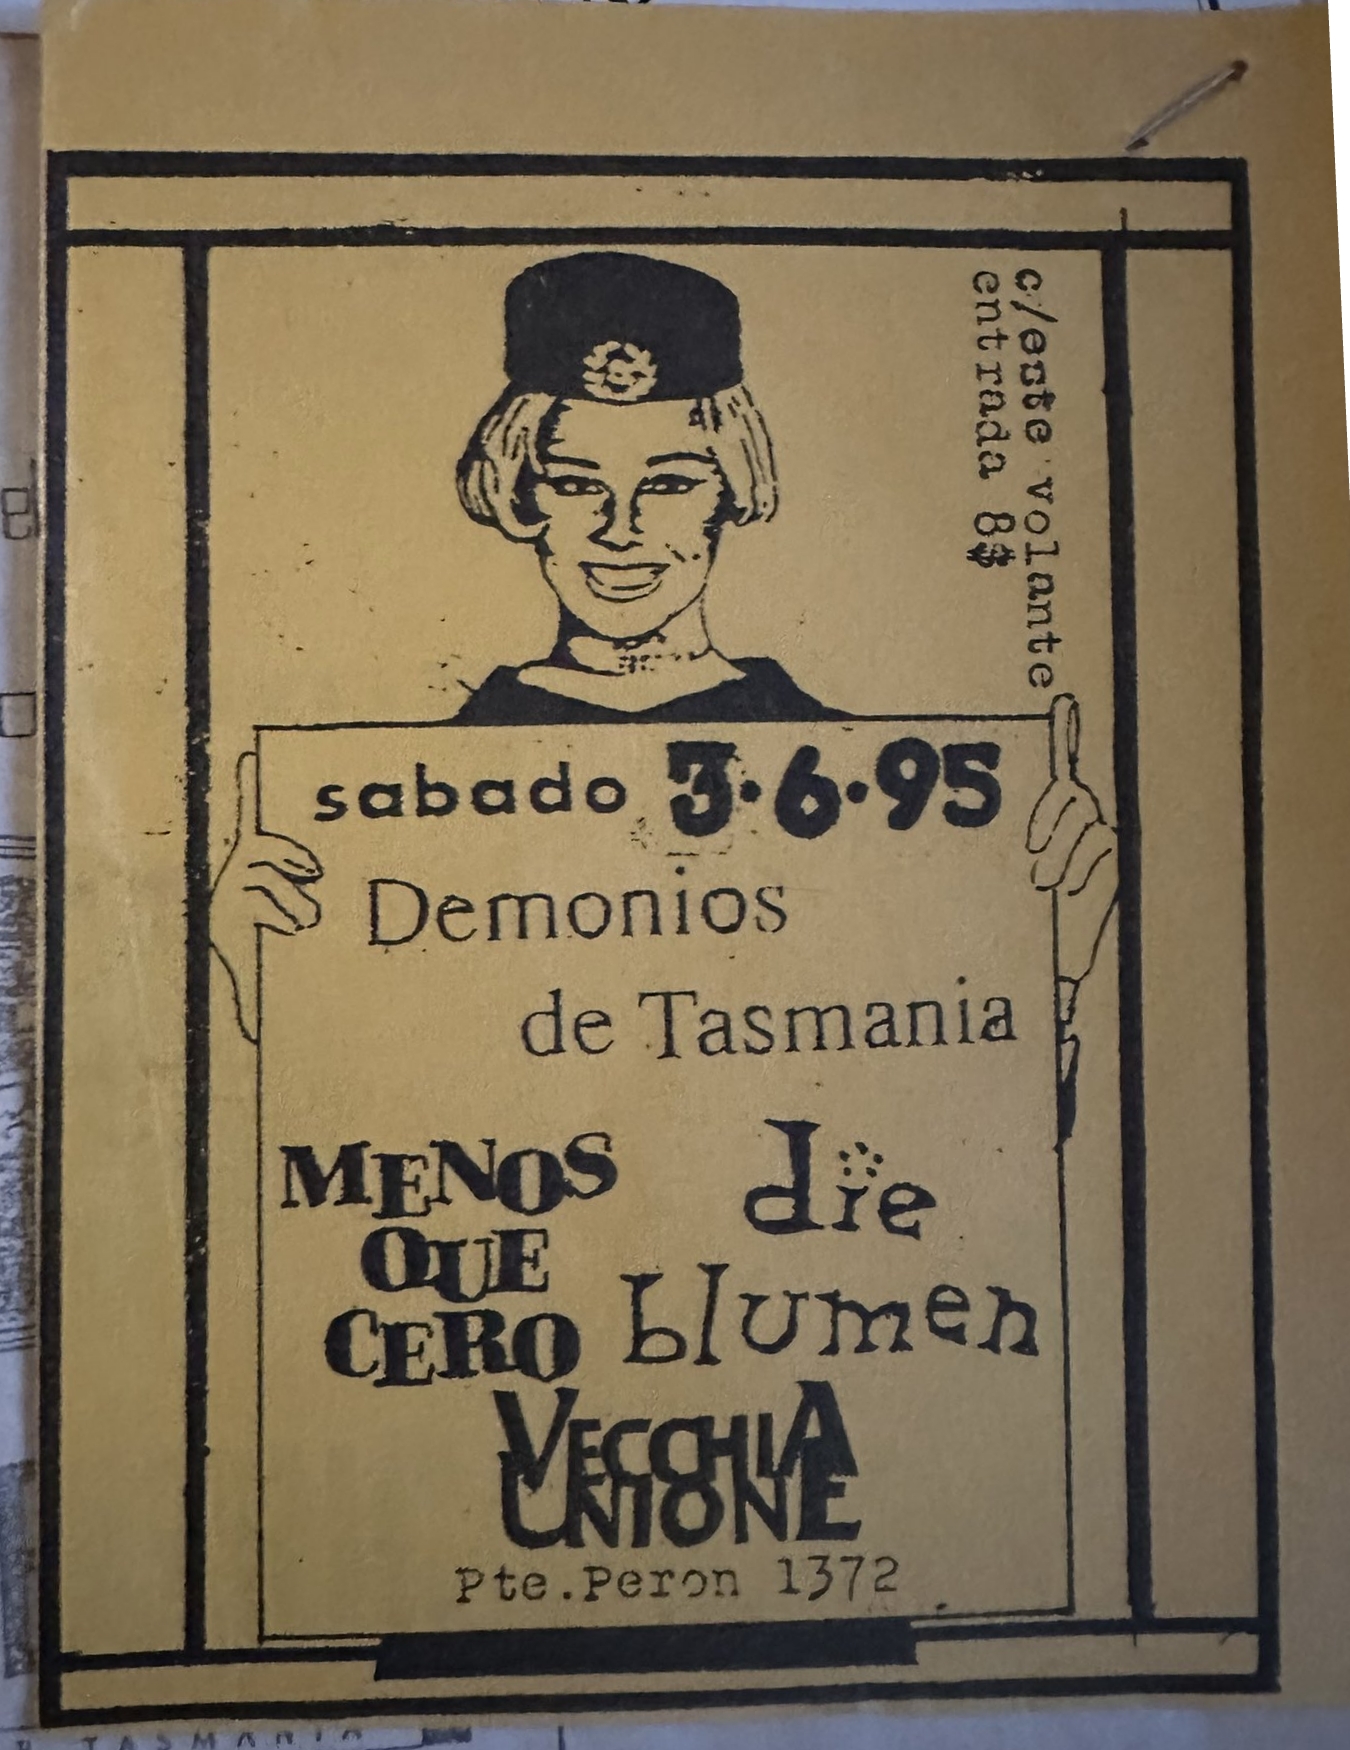 c/este volante
entrada 8$
sabado 3·6·95
Demonios
de Tasmania
MENOS
QUE
CERO
die
blumen
VECCHIA
UNIONE
Pte.Peron 1372
TASMANIA